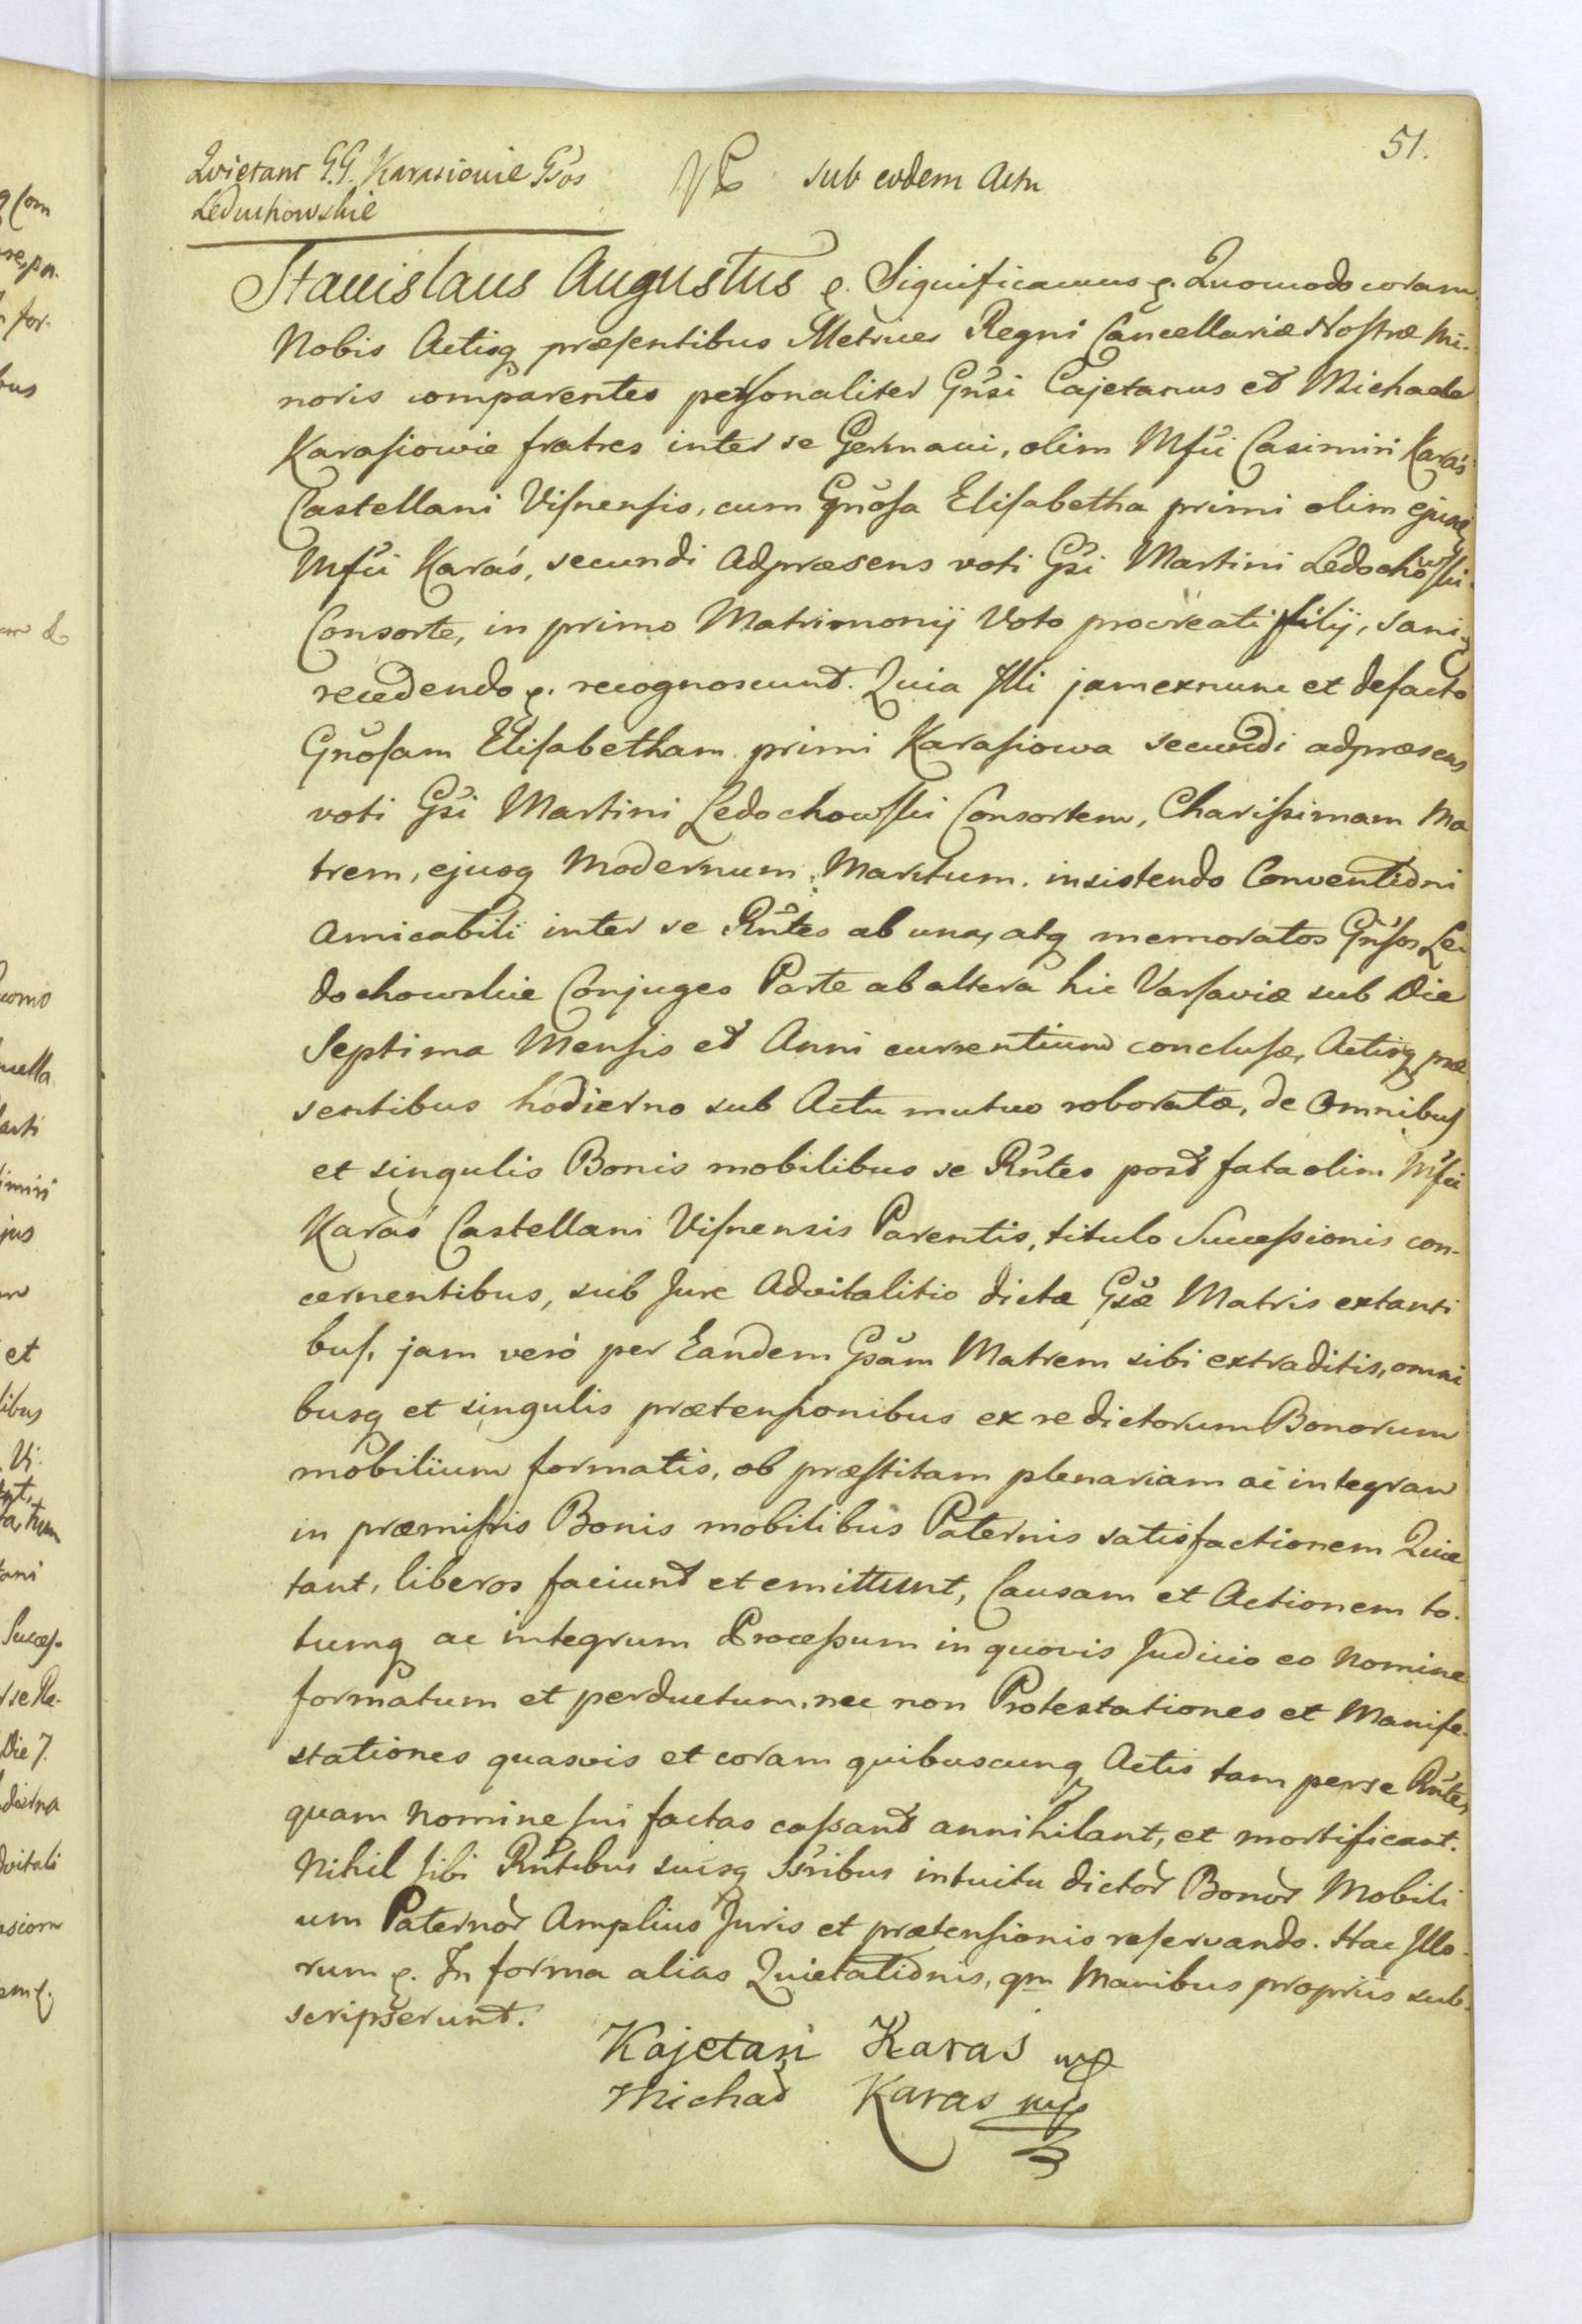 51.
Quietant G.G. Karasiowie Gsos
Leduchowskie
sub eodem Actu
Stanislaus Augustus &. Significamus &. Quomodo coram
Nobis Actisq præsentibus Metrices Regni Cancellariæ Nostræ Mi-
noris comparentes personaliter Gnsi Cajetanus et Michael
Karasiowie fratres inter se Germani, olim Mfci Casimiri Karaś
Castellani Visnensis, cum Gnosa Elisabetha primi olim ejusq
Mfci Karaś, secundi adpræsens voti Gsi Martini Ledochowski
Consorte, in primo Matrimonij Voto procreati filij, sani
recedendo &. recognoscunt. Quia Illi jam exnunc et defacto
Gnosam Elisabetham primi Karasiowa secundi adpræsens
voti Gsi Martini Ledochowski Consortem, Charissimam Ma
trem, ejusq Modernum Maritum. insistendo Conventioni
Amicabili inter se Rntes ab una, atq memoratos Gnsos Le-
dochowskie Conjuges Parte ab altera hic Varsaviæ sub Die
Septima Mensis et Anni currentium conclusæ, Actisq præ
sentibus hodierno sub Actu mutuo roboratæ, de Omnibus
et singulis Bonis mobilibus se Rntes post fata olim Mfci
Karaś Castellani Visnensis Parentis, titulo Successionis con-
cernentibus, sub Jure Advitalitio dictæ Gsæ Matris extanti
bus, jam vero per Eandem Gsam Matrem sibi extraditis, omni
busq et singulis prætensionibus ex re dictorum Bonorum
mobilium formatis, ob præstitam plenariam ac integram
in præmissis Bonis mobilibus Paternis satisfactionem Quie
tant, liberos faciunt et emittunt, Causam et Actionem to-
tumq ac integrum Processum in quovis Judicio eo Nomine
formatum et perductum, nec non Protestationes et Manife-
stationes quasvis et coram quibuscunq Actis tam per se Rntes
quam Nomine sui factas cassant annihilant, et mortificant.
Nihil sibi Rntibus suisq Ssribus intuitu dictor Bonor Mobili
um Paternor Amplius Juris et prætensionis reservando. Hac Illo-
rum &. In forma alias Quietationis, qm Manibus propriis sub-
scripserunt.
Kajetan Karaś mp
Michał Karaś mp